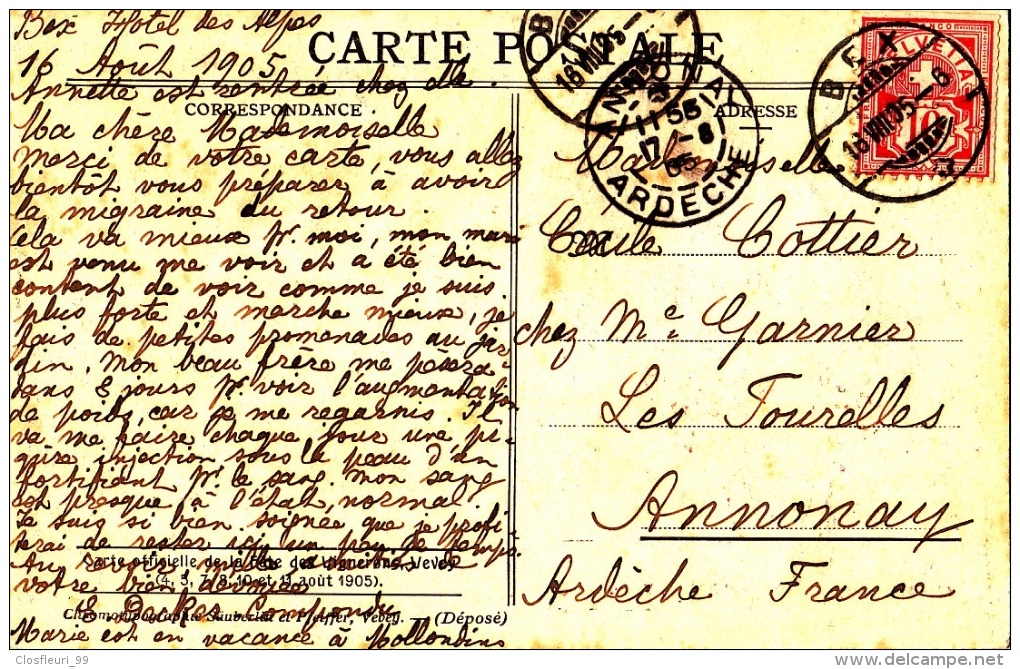 Bex Hôtel des Alpes
16 Août 1905
CARTE POSTALE
Annette est rentrée chez elle
CORRESPONDANCE
Ma chère Mademoiselle
Merci de votre carte, vous allez
bientôt vous préparer à avoir
la migraine du retour.
Cela va mieux pr. moi, mon mari
est venu me voir et a été bien
content de voir comme je suis
plus forte et marche mieux, je
fais de petites promenades au jar-
din. Mon beau frère me pèsera
dans 8 jours pr. voir l'augmentation
de poids, car je me regarnis. Il
va me faire chaque jour une pi-
qûre injection sous la peau d'un
fortifiant pr. le sang. Mon sang
est presque à l'état normal
Je suis si bien soignée que je profi
terai de rester ici un peu de temps.
Au revoir
Carte officielle de la Fête des Vignerons, Vevey
(4, 5, 7, 8, 10 et 11 août 1905).
votre bien dévouée
Chromotypographie Säuberlin et Pfeiffer, Vevey. — (Déposé)
Marie est en vacance à Mollondins
ADRESSE
Mademoiselle
Cécile Cottier
chez Mc. Garnier
Les Tourelles
Annonay
Ardèche France
BEX
16 VIII 05 - 8
HELVETIA
10
BEX
16 VIII 05 - 8
ANNONAY
11 55
17 - 8
05
ARDÈCHE
Closfleuri_99
delcampe.net